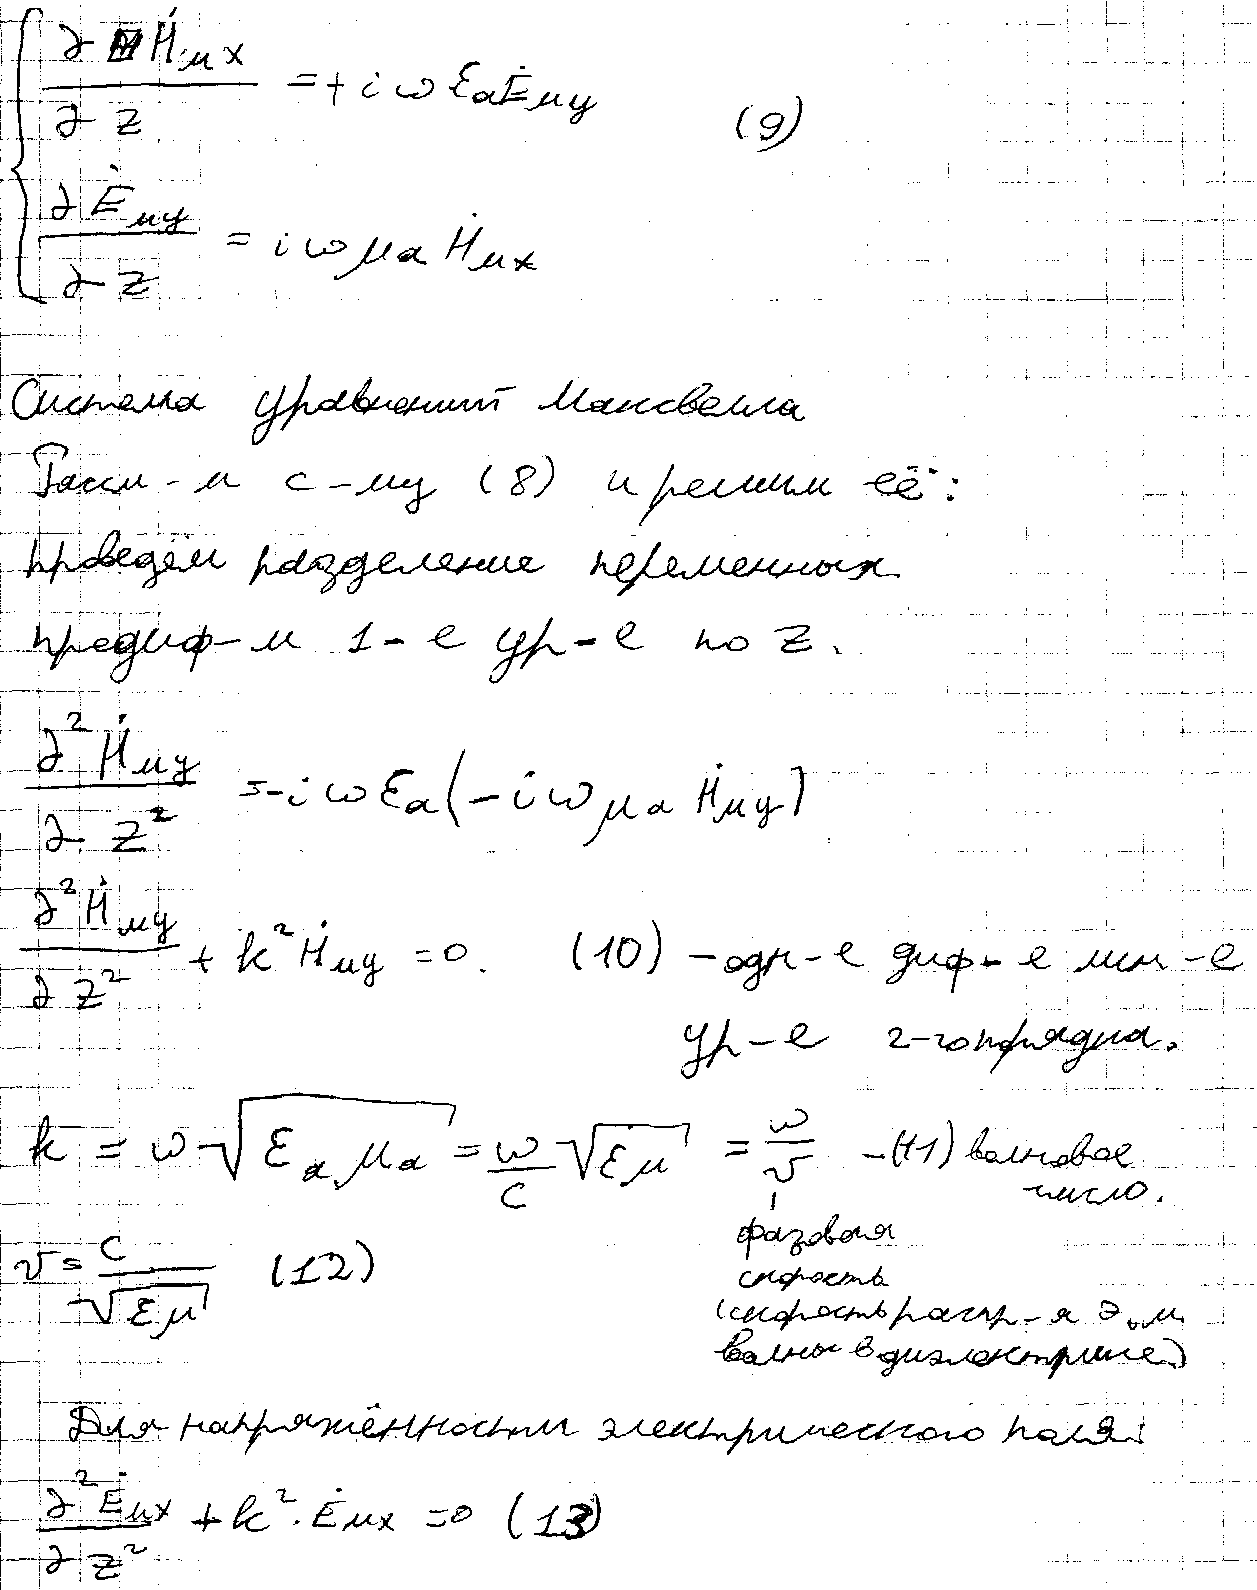 ∂Ḣмx/∂z = +iωεaĖмy (9)
∂Ėмy/∂z = iωμaḢмx
Система уравнений Максвелла
Рассм-м с-му (8) и решим её:
проведём разделение переменных
продиф-м 1-е ур-е по z.
∂²Ḣмy/∂z² = -iωεa(-iωμaḢмy)
∂²Ḣмy/∂z² + k²Ḣмy = 0. (10) - одн-е диф-е лин-е
ур-е 2-го порядка.
k = ω√(εaμa) = ω/c √(εμ) = ω/v - (11) волновое
число.
фазовая
скорость
(скорость распр-я э.м.
волны в диэлектрике)
v = c/√(εμ) (12)
Для напряжённости электрического поля:
∂²Ėмx/∂z² + k²·Ėмx = 0 (13)